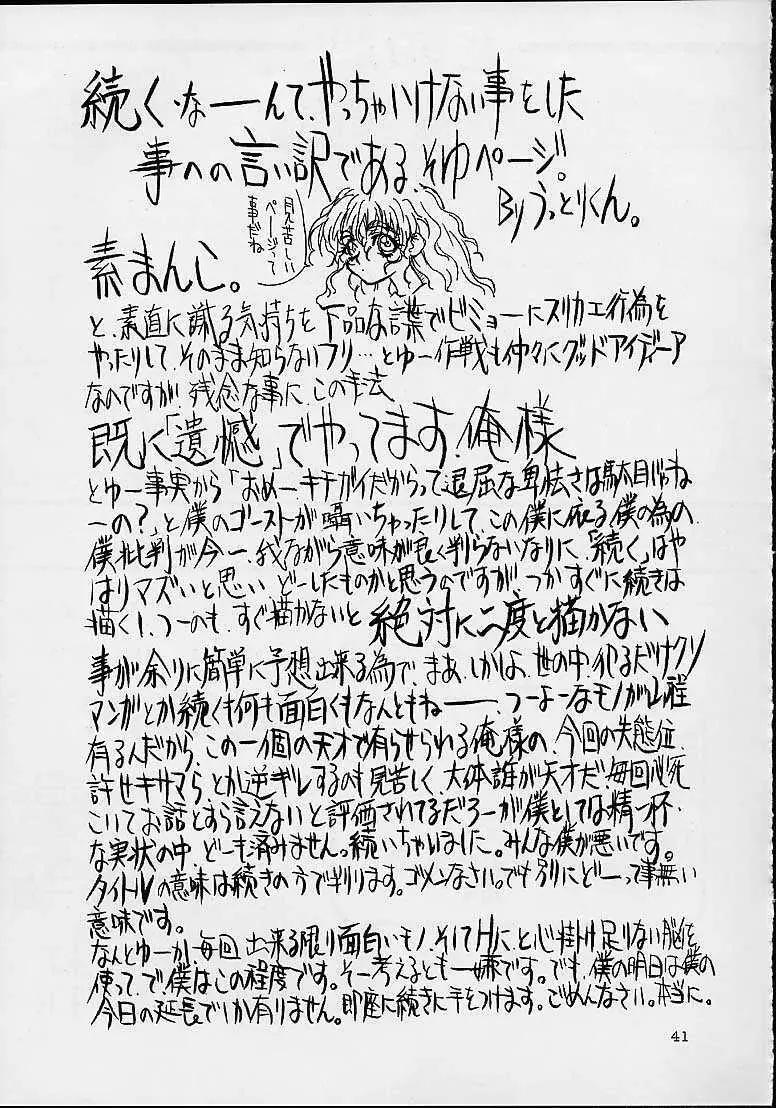 続く、なーーんて、やっちゃいけない事をした
事への言い訳である、そゆページ。
Byうっとりくん。
見苦しい
ページって
事だね
素まんじ。
と、素直に謝る気持ちを下品な言葉でビミョーにスリカエ行為を
やったりして、そのまま知らないフリ…とゆー作戦も仲々にグッドアイディーア
なのですが、残念な事に、この手法
既に「遺憾」でやってます、俺様
とゆー事実から「おめー、キチガイだからって退屈な卑怯さは駄目じゃね
ーの?」と僕のゴーストが囁いちゃったりして、この僕に依る僕の為の、
僕批判が今一、我ながら意味が良く判らないなりに、「続く」はや
はりマズいと思い、どーしたものかと思うのですが、つかすぐに続きは
描く!、つーのも、すぐ描かないと 絶対に二度と描かない
事が余りに簡単に予想出来る為で、まあ、しかしよ、世の中、犯るだけクソ
マンガとか続くも何も面白くもなんともねーーー、つーよーなモノが山程
有るんだから、この一個の天才で有らせられる俺様の、今回の失態位、
許せキサマら、とか逆ギレするのも見苦しく、大体誰が天才だ、毎回必死
こいてお話とすら言えないと評価されてるだろーが僕としては精一杯・
な実状の中、どーも済みませんっ続いちゃいました。みんな僕が悪いです。
タイトルの意味は続きの方で判ります。ゴメンなさい。でも別にどーって事無い
意味です。
なんとゆーか、毎回、出来る限り面白いモノ、そしてHに、と心掛け足りない脳を
使って、で、僕はこの程度です。そー考えるとも一嫌です。でも、僕の明日は僕の
今日の延長でしか有りません。即座に続きに手をつけます。ごめんなさい。本当に。
41